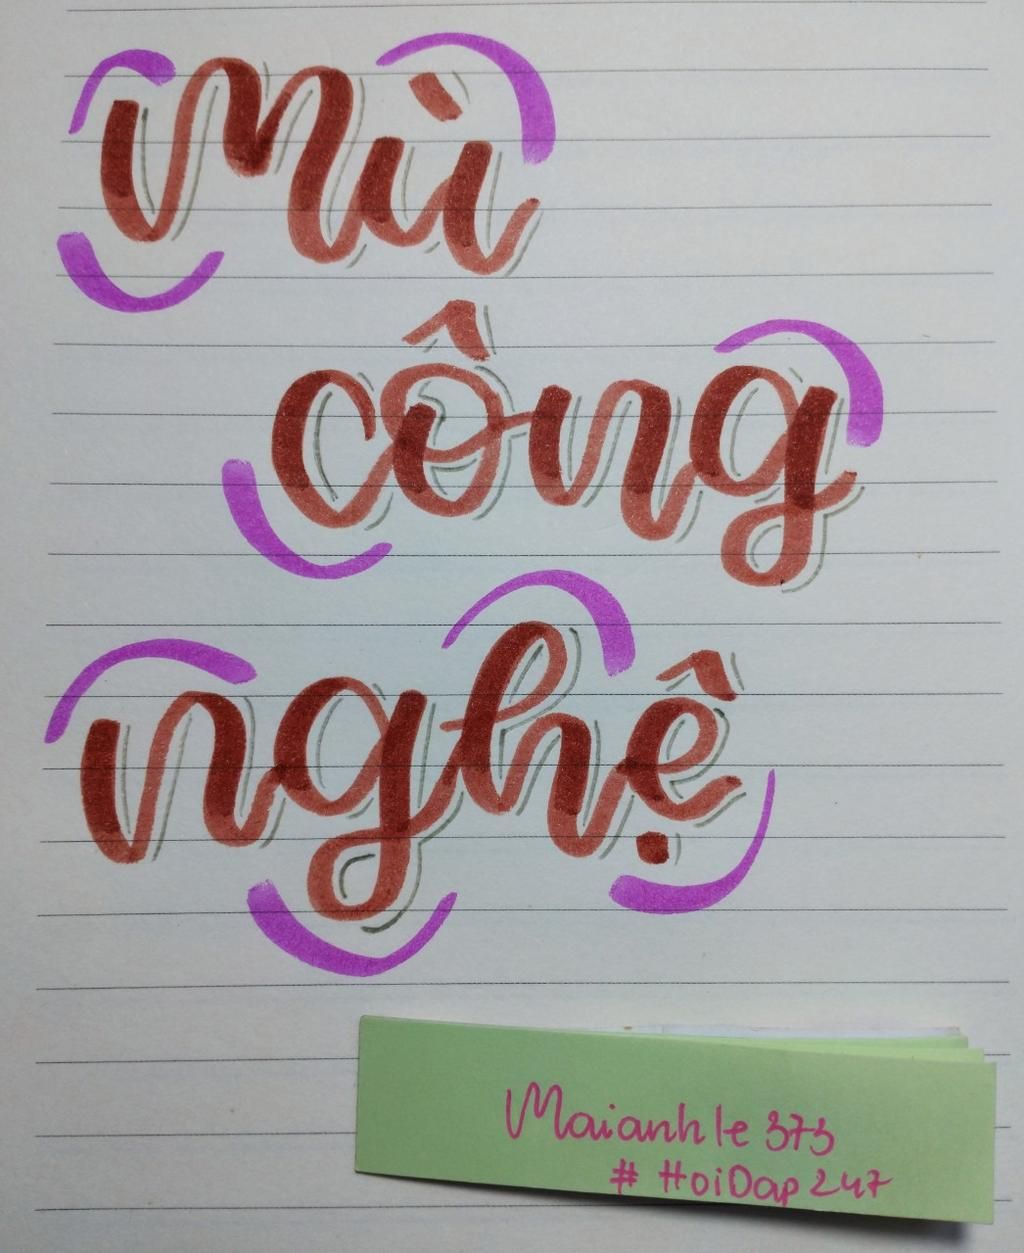 Mù
công
nghệ
Maianhle373
#HoiDap247